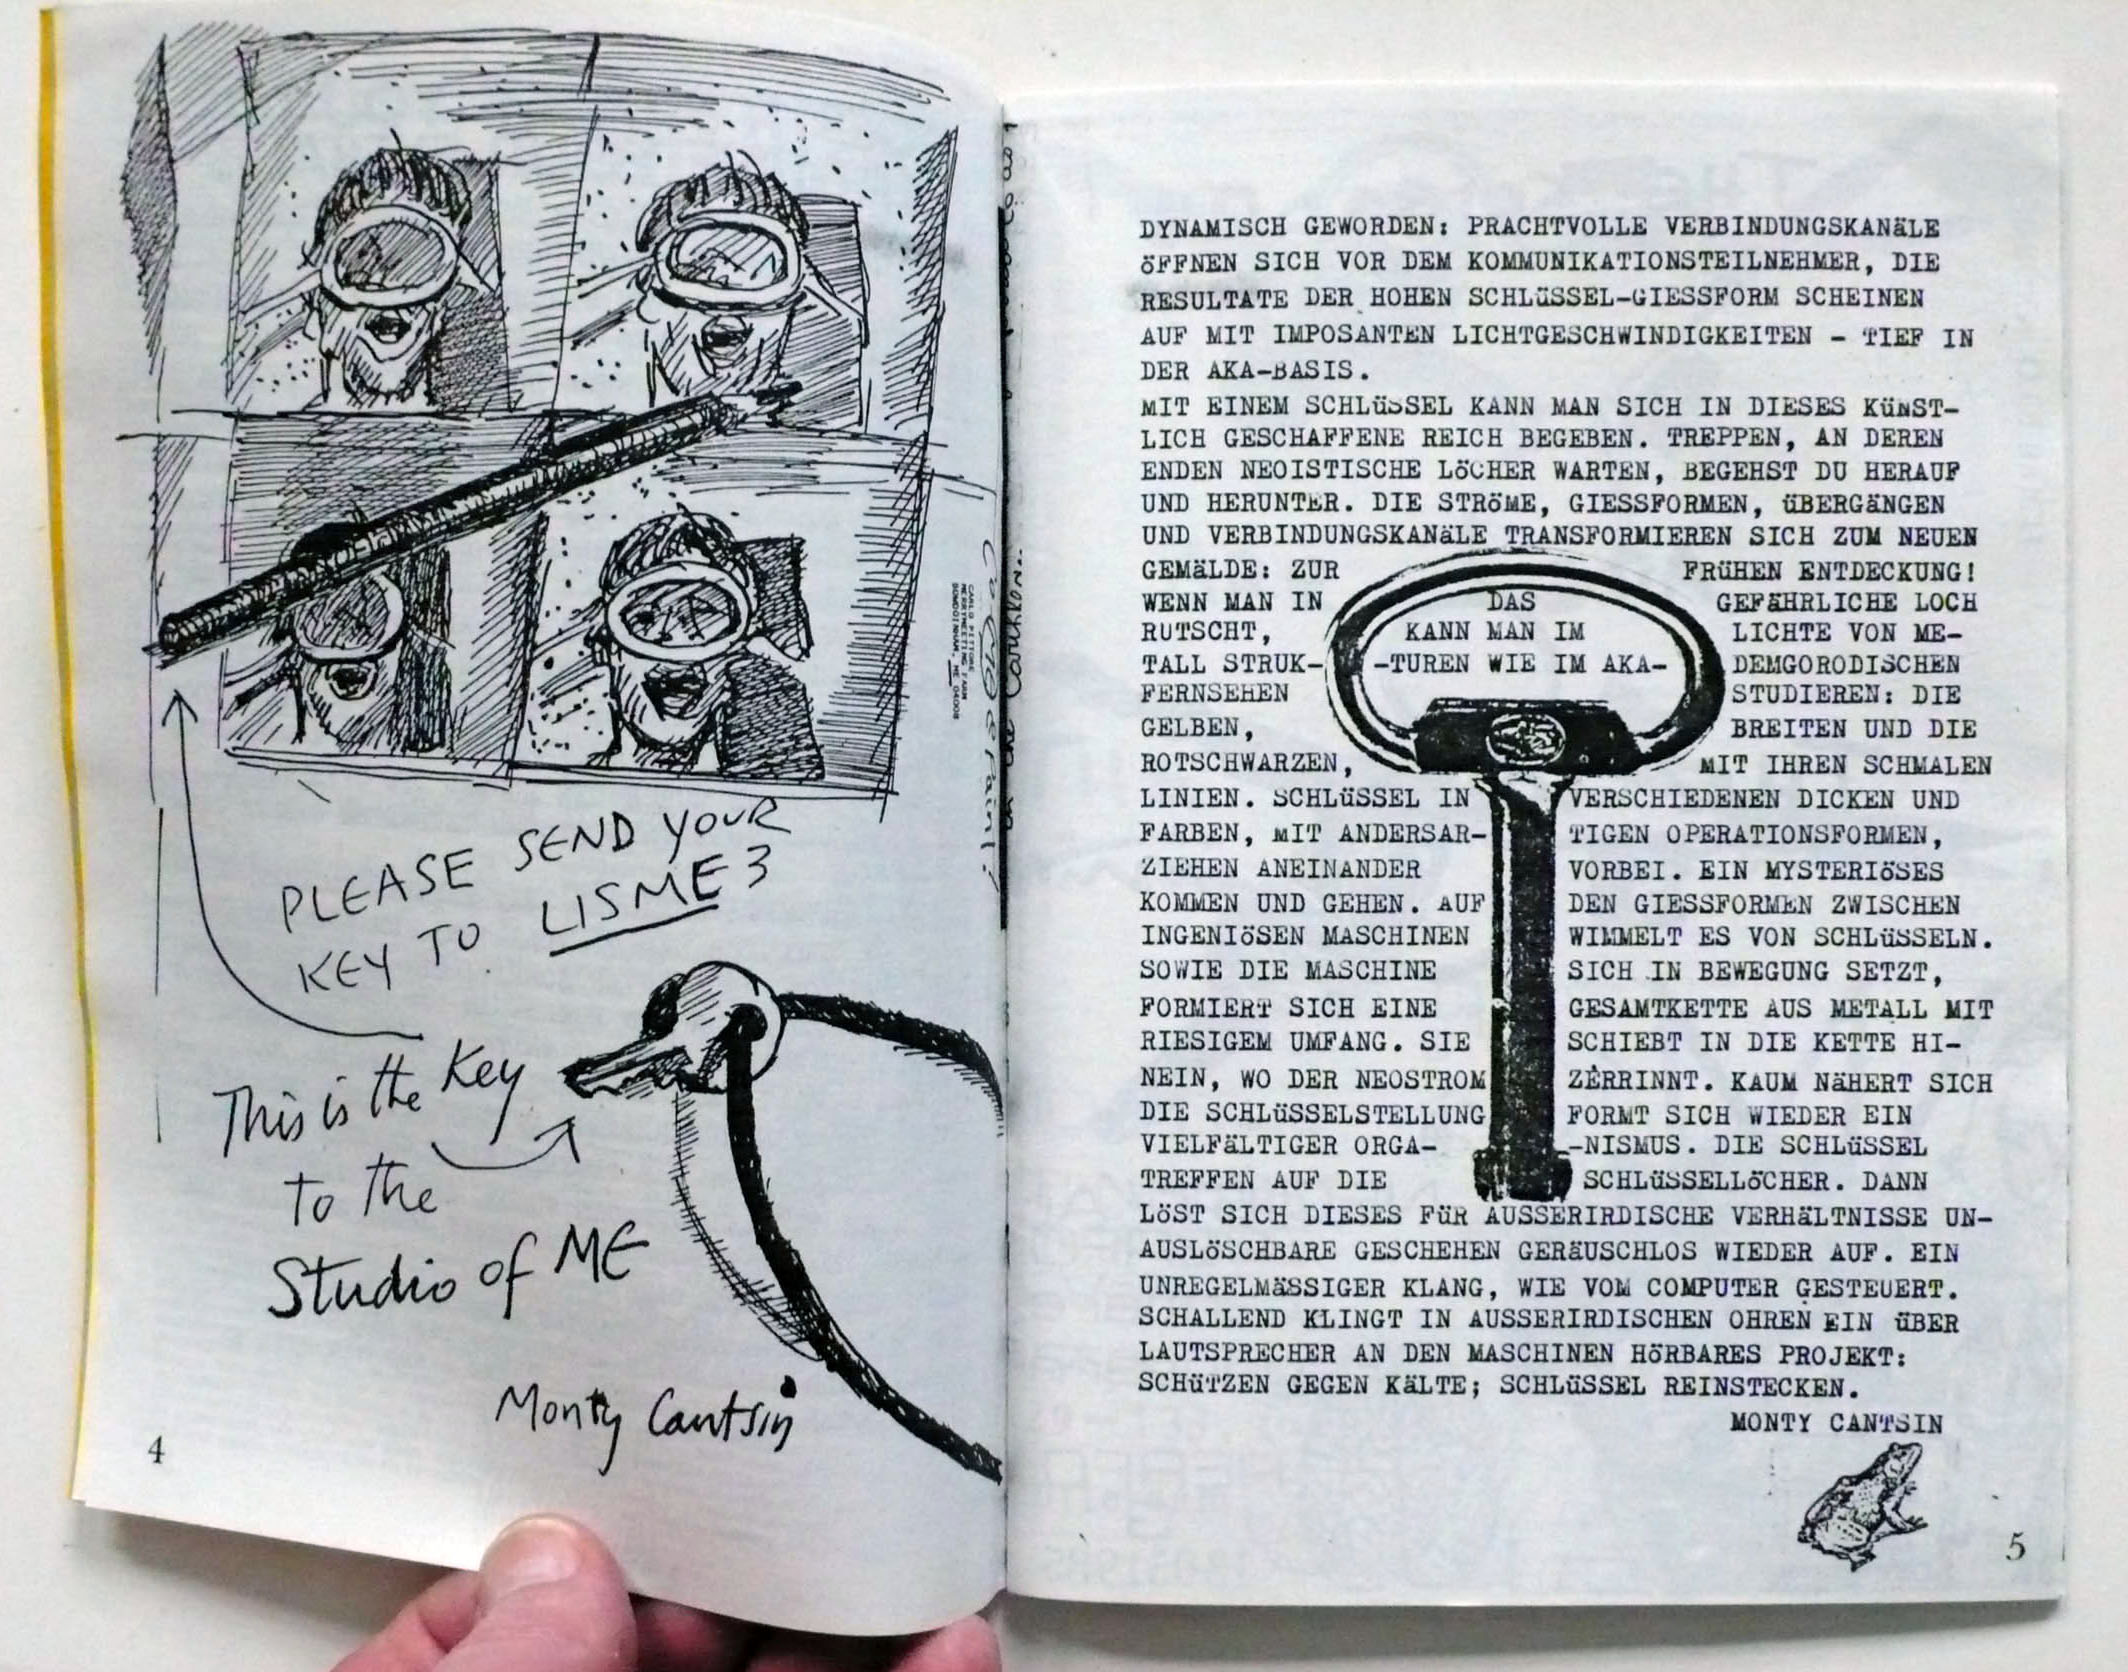 PLEASE SEND YOUR
KEY TO LISME3
This is the Key
to the
Studio of ME
Monty Cantsin
CARLO PITTORE
MERRYMEETING FARM
BOWDOINHAM, ME 04008
4
DYNAMISCH GEWORDEN: PRACHTVOLLE VERBINDUNGSKANäLE
öFFNEN SICH VOR DEM KOMMUNIKATIONSTEILNEHMER, DIE
RESULTATE DER HOHEN SCHLüSSEL-GIESSFORM SCHEINEN
AUF MIT IMPOSANTEN LICHTGESCHWINDIGKEITEN - TIEF IN
DER AKA-BASIS.
MIT EINEM SCHLüSSEL KANN MAN SICH IN DIESES KüNST-
LICH GESCHAFFENE REICH BEGEBEN. TREPPEN, AN DEREN
ENDEN NEOISTISCHE LöCHER WARTEN, BEGEHST DU HERAUF
UND HERUNTER. DIE STRöME, GIESSFORMEN, üBERGäNGEN
UND VERBINDUNGSKANäLE TRANSFORMIEREN SICH ZUM NEUEN
GEMäLDE: ZUR FRüHEN ENTDECKUNG!
WENN MAN IN DAS GEFäHRLICHE LOCH
RUTSCHT, KANN MAN IM LICHTE VON ME-
TALL STRUK- -TUREN WIE IM AKA- DEMGORODISCHEN
FERNSEHEN STUDIEREN: DIE
GELBEN, BREITEN UND DIE
ROTSCHWARZEN, MIT IHREN SCHMALEN
LINIEN. SCHLüSSEL IN VERSCHIEDENEN DICKEN UND
FARBEN, MIT ANDERSAR- TIGEN OPERATIONSFORMEN,
ZIEHEN ANEINANDER VORBEI. EIN MYSTERIöSES
KOMMEN UND GEHEN. AUF DEN GIESSFORMEN ZWISCHEN
INGENIöSEN MASCHINEN WIMMELT ES VON SCHLüSSELN.
SOWIE DIE MASCHINE SICH IN BEWEGUNG SETZT,
FORMIERT SICH EINE GESAMTKETTE AUS METALL MIT
RIESIGEM UMFANG. SIE SCHIEBT IN DIE KETTE HI-
NEIN, WO DER NEOSTROM ZERRINNT. KAUM NäHERT SICH
DIE SCHLüSSELSTELLUNG FORMT SICH WIEDER EIN
VIELFäLTIGER ORGA- -NISMUS. DIE SCHLüSSEL
TREFFEN AUF DIE SCHLüSSELLöCHER. DANN
LöST SICH DIESES FüR AUSSERIRDISCHE VERHäLTNISSE UN-
AUSLöSCHBARE GESCHEHEN GERäUSCHLOS WIEDER AUF. EIN
UNREGELMäSSIGER KLANG, WIE VOM COMPUTER GESTEUERT.
SCHALLEND KLINGT IN AUSSERIRDISCHEN OHREN EIN üBER
LAUTSPRECHER AN DEN MASCHINEN HöRBARES PROJEKT:
SCHüTZEN GEGEN KäLTE; SCHLüSSEL REINSTECKEN.
MONTY CANTSIN
5